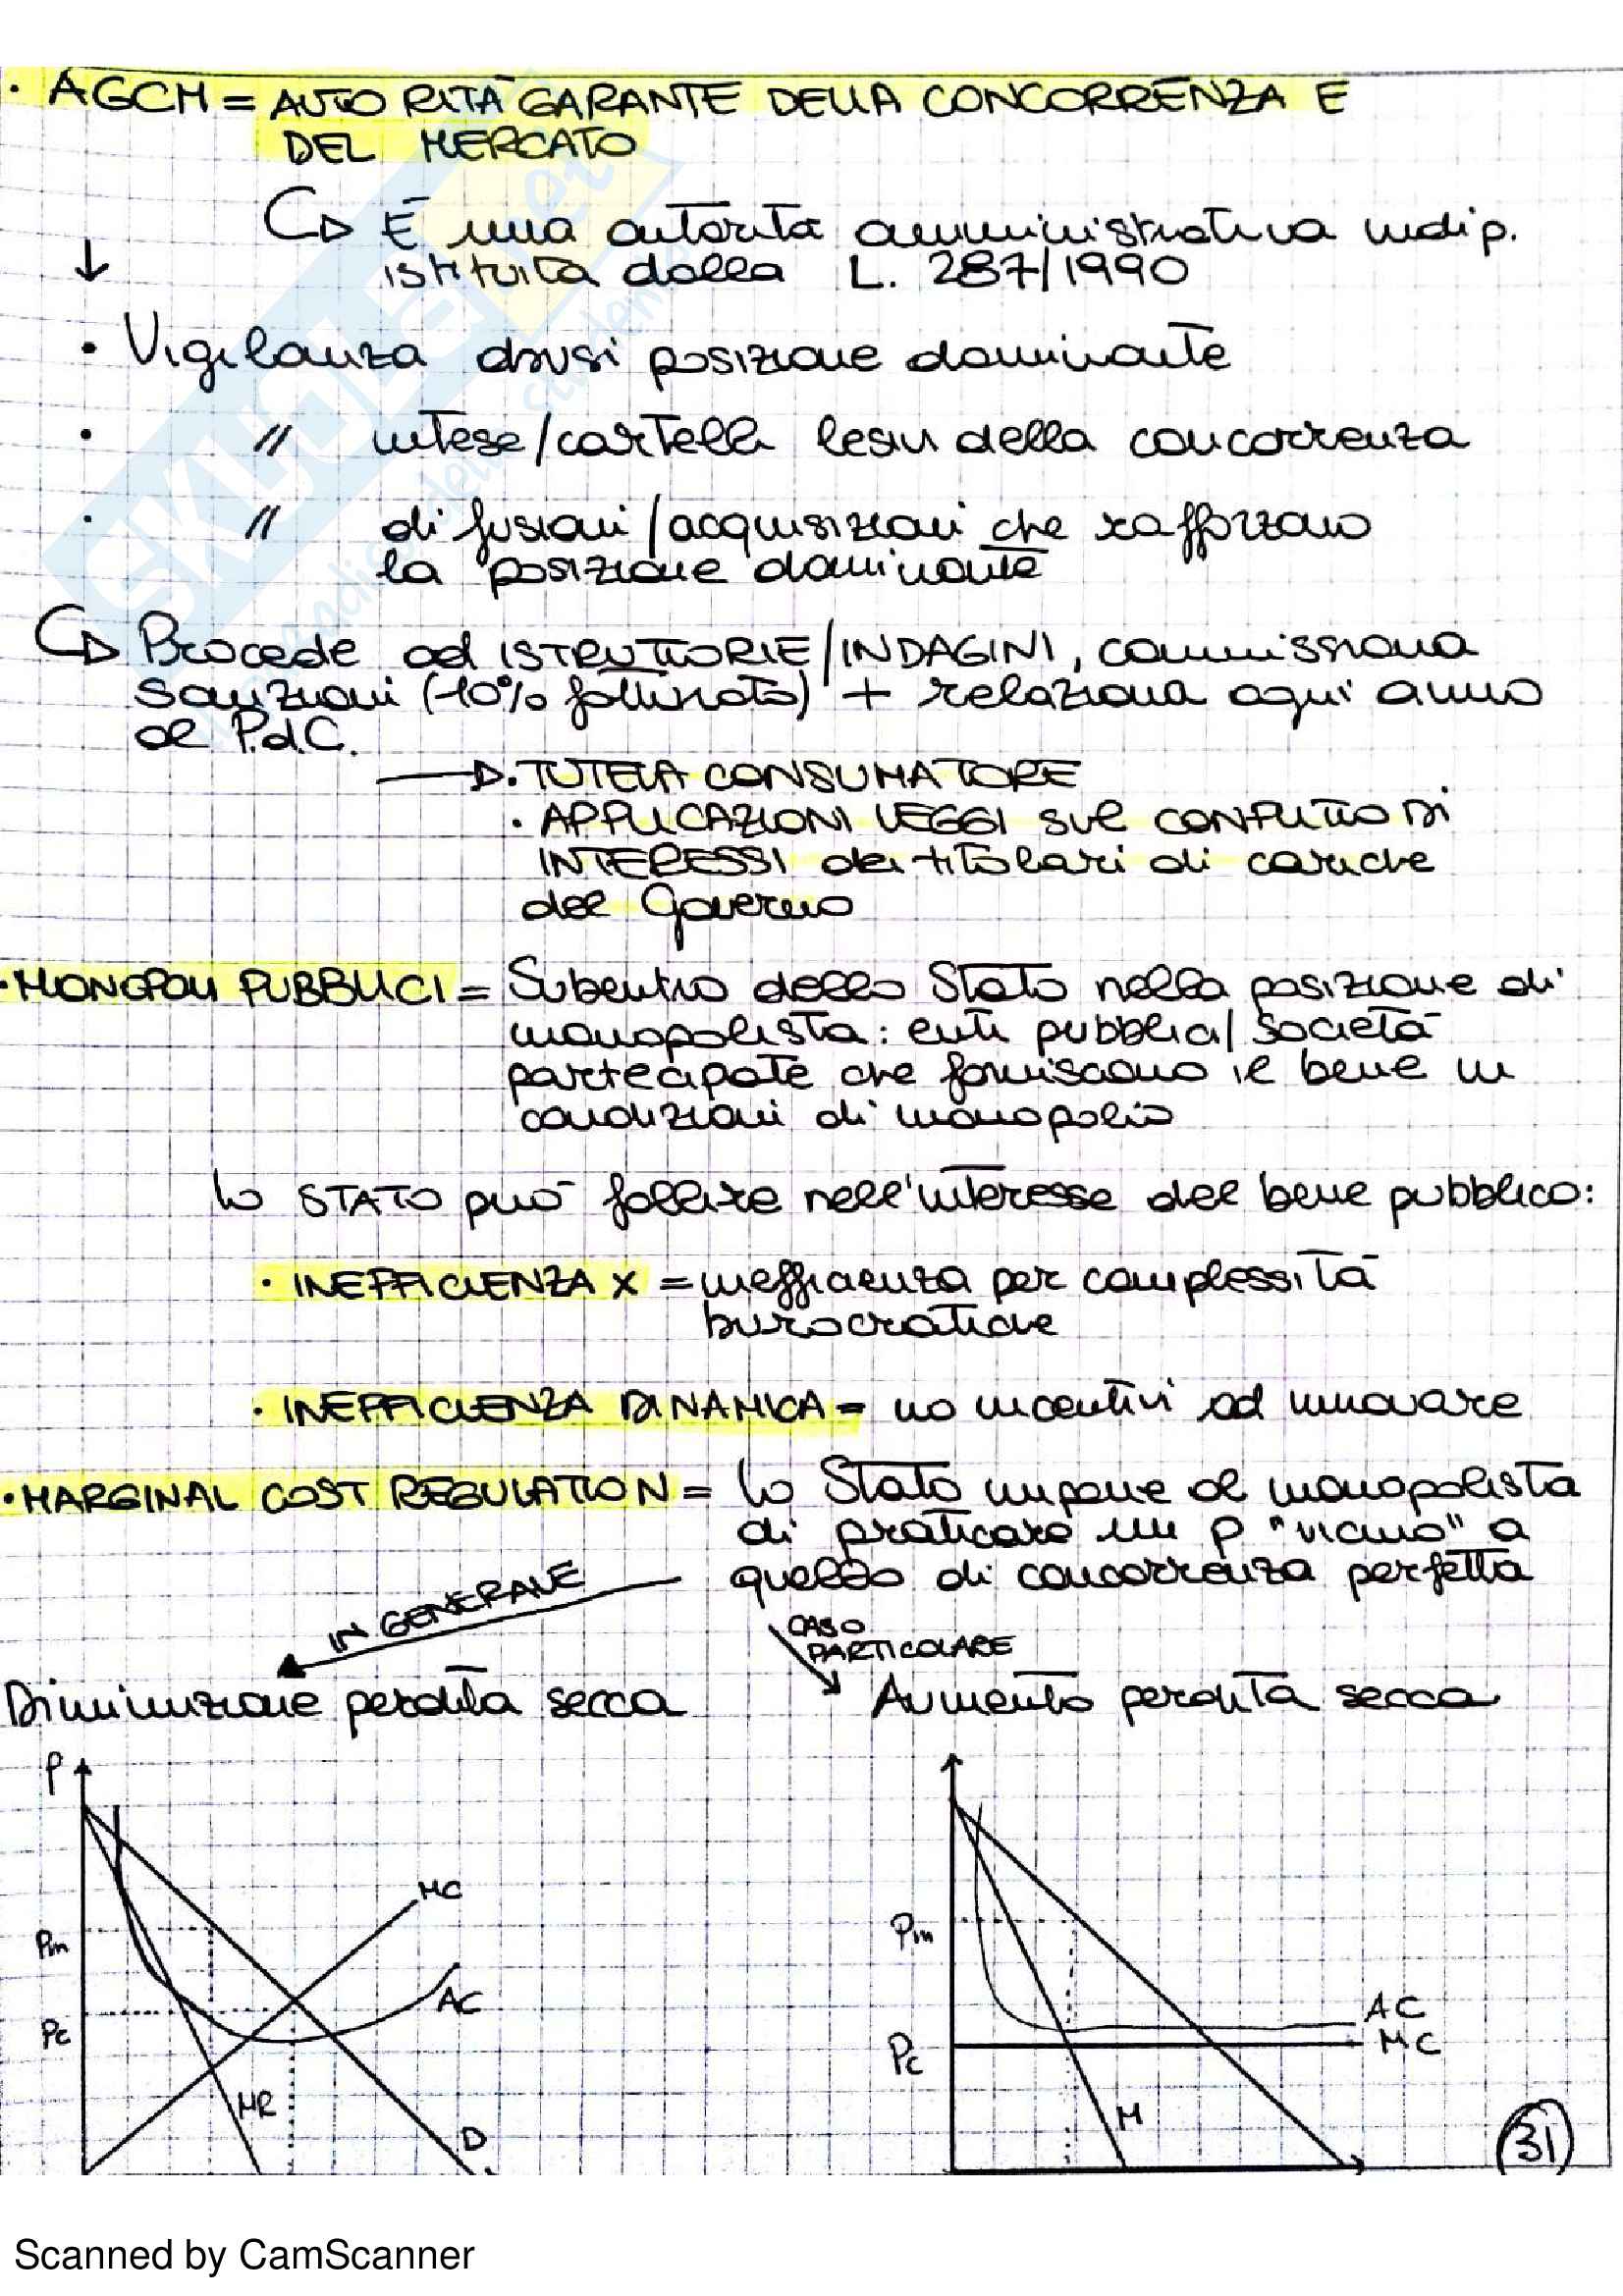 · AGCM = AUTORITÀ GARANTE DELLA CONCORRENZA E
DEL MERCATO
È una autorità amministrativa indip.
istituita dalla L. 287/1990
· Vigilanza abusi posizione dominante
· // intese/cartelli lesivi della concorrenza
· // di fusioni/acquisizioni che rafforzano
la posizione dominante
Procede ad ISTRUTTORIE/INDAGINI, commissiona
sanzioni (-10% fatturato) + relaziona ogni anno
al P.d.C.
· TUTELA CONSUMATORE
· APPLICAZIONI LEGGI sul CONFLITTO DI
INTERESSI dei titolari di cariche
del Governo
· MONOPOLI PUBBLICI = Subentro dello Stato nella posizione di
monopolista: enti pubblici/società
partecipate che forniscono il bene in
condizioni di monopolio
Lo STATO può fallire nell'interesse del bene pubblico:
· INEFFICIENZA X = inefficienza per complessità
burocratiche
· INEFFICIENZA DINAMICA = no incentivi ad innovare
· MARGINAL COST REGULATION = Lo Stato impone al monopolista
di praticare un p "vicino" a
quello di concorrenza perfetta
IN GENERALE
CASO
PARTICOLARE
Diminuzione perdita secca
Aumento perdita secca
P
MC
Pm
AC
Pc
MR
D
Pm
AC
MC
Pc
M
31
Scanned by CamScanner